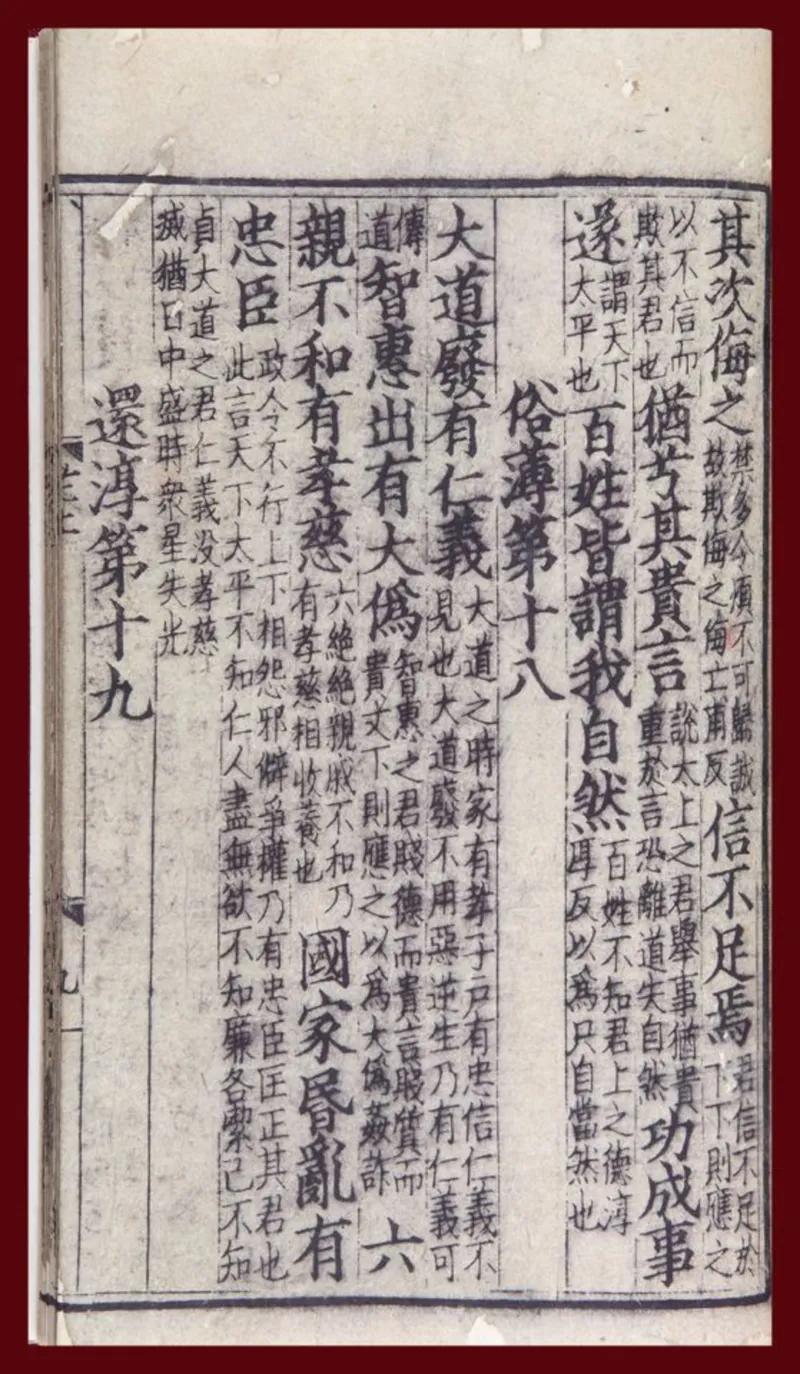 其次侮之禁多令煩不可歸誠故欺侮之侮亡甫反信不足焉君信不足於下下則應之
以不信而欺其君也猶兮其貴言說太上之君舉事猶貴重於言恐離道失自然功成事
遂謂天下太平也百姓皆謂我自然百姓不知君上之德淳厚反以爲只自當然也
俗薄第十八
大道廢有仁義大道之時家有孝子戸有忠信仁義不見也大道廢不用惡逆生乃有仁義可
傳道智惠出有大僞智惠之君賤德而貴言賤質而貴文下則應之以爲大僞姦詐六
親不和有孝慈六絶絶親戚不和乃有孝慈相收養也國家昬亂有
忠臣政令不行上下相怨邪僻爭權乃有忠臣匡正其君也此言天下太平不知仁人盡無欲不知廉各絜己不知
貞大道之君仁義没孝慈滅猶日中盛時衆星失光
還淳第十九